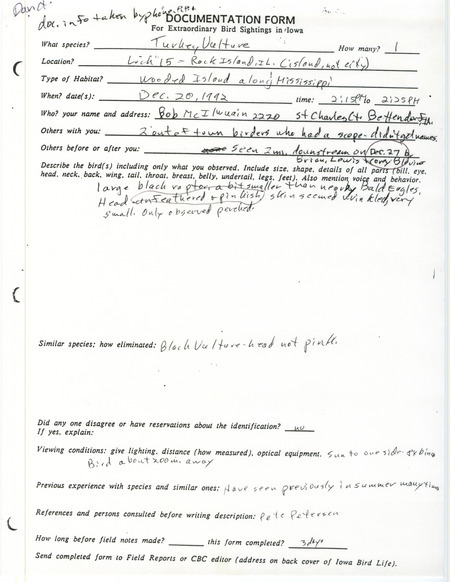 David
doc. info taken by phone. DOCUMENTATION FORM
For Extraordinary Bird Sightings in Iowa
What species? Turkey Vulture How many? 1
Location? Lock 15 - Rock Island, IL. (island, not city)
Type of Habitat? Wooded Island along Mississippi
When? date(s): Dec. 20, 1992 time: 2:15 to 2:25PM
Who? your name and address: Bob McIlwain 2220 St Charles Ct Bettendorf, IA.
Others with you: 2 out of town birders who had a scope - didn't get names
Others before or after you: seen 2 mi. downstream on Dec. 27 by
Brian, Lewis &
Describe the bird(s) including only what you observed. Include size, shape, details of all parts (bill, eye,
head, neck, back, wing, tail, throat, breast, belly, undertail, legs, feet). Also mention voice and behavior.
large black raptor a bit smaller than nearby Bald Eagles.
Head unfeathered & pinkish, skin seemed wrinkled, very
small. Only observed perched.
Similar species; how eliminated: Black Vulture - head not pink.
Did any one disagree or have reservations about the identification? no
If yes, explain:
Viewing conditions: give lighting, distance (how measured), optical equipment. Sun to one side.
Bird about 200m. away
Previous experience with species and similar ones: Have seen previously in summer many times
References and persons consulted before writing description: Pete Petersen
How long before field notes made? this form completed? 3 days
Send completed form to Field Reports or CBC editor (address on back cover of Iowa Bird Life).